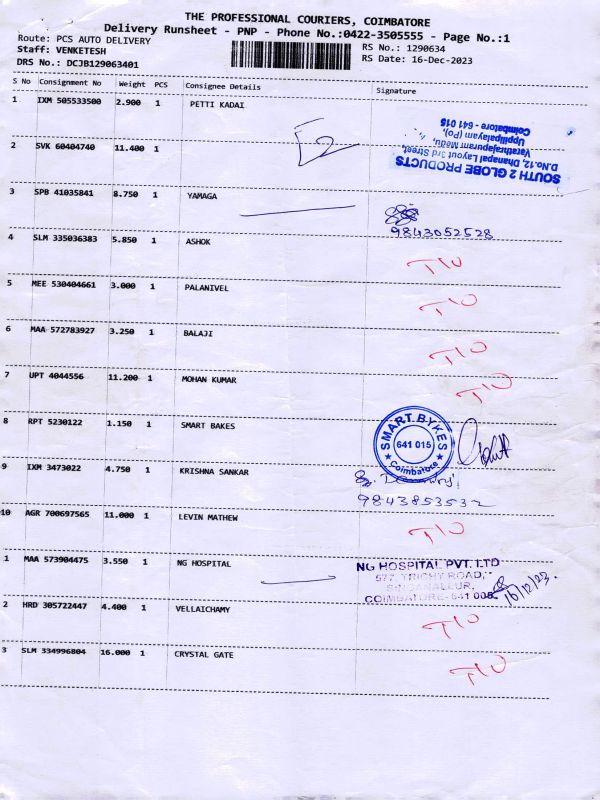 THE PROFESSIONAL COURIERS, COIMBATORE
Delivery Runsheet - PNP - Phone No.:0422-3505555 - Page No.:1
Route: PCS AUTO DELIVERY
RS No.: 1290634
Staff: VENKETESH
RS Date: 16-Dec-2023
DRS No.: DCJB129063401
S No Consignment No Weight PCS Consignee Details Signature
1 IXM 505533500 2.900 1 PETTI KADAI
SOUTH 2 GLOBE PRODUCTS
D.No.12, Dhanapal Layout 3rd Street,
Varathrajapuram Medu,
Uppilipalayam (Po),
Coimbatore - 641 015
2 SVK 60404740 11.400 1
3 SPB 41035841 8.750 1 YAMAGA
9843052528
4 SLM 335036383 5.850 1 ASHOK
T10
5 MEE 530404661 3.000 1 PALANIVEL
T10
6 MAA 572783927 3.250 1 BALAJI
T10
7 UPT 4044556 11.200 1 MOHAN KUMAR
T10
8 RPT 5230122 1.150 1 SMART BAKES
SMART.BYKES
641 015
Coimbatore
9 IXM 3473022 4.750 1 KRISHNA SANKAR
9843853532
10 AGR 700697565 11.000 1 LEVIN MATHEW
T10
1 MAA 573904475 3.550 1 NG HOSPITAL
NG HOSPITAL PVT. LTD
577, TRICHY ROAD,
SINGANALLUR,
COIMBATORE-641 005.
16/12/23
2 HRD 305722447 4.400 1 VELLAICHAMY
T10
3 SLM 334996804 16.000 1 CRYSTAL GATE
T10